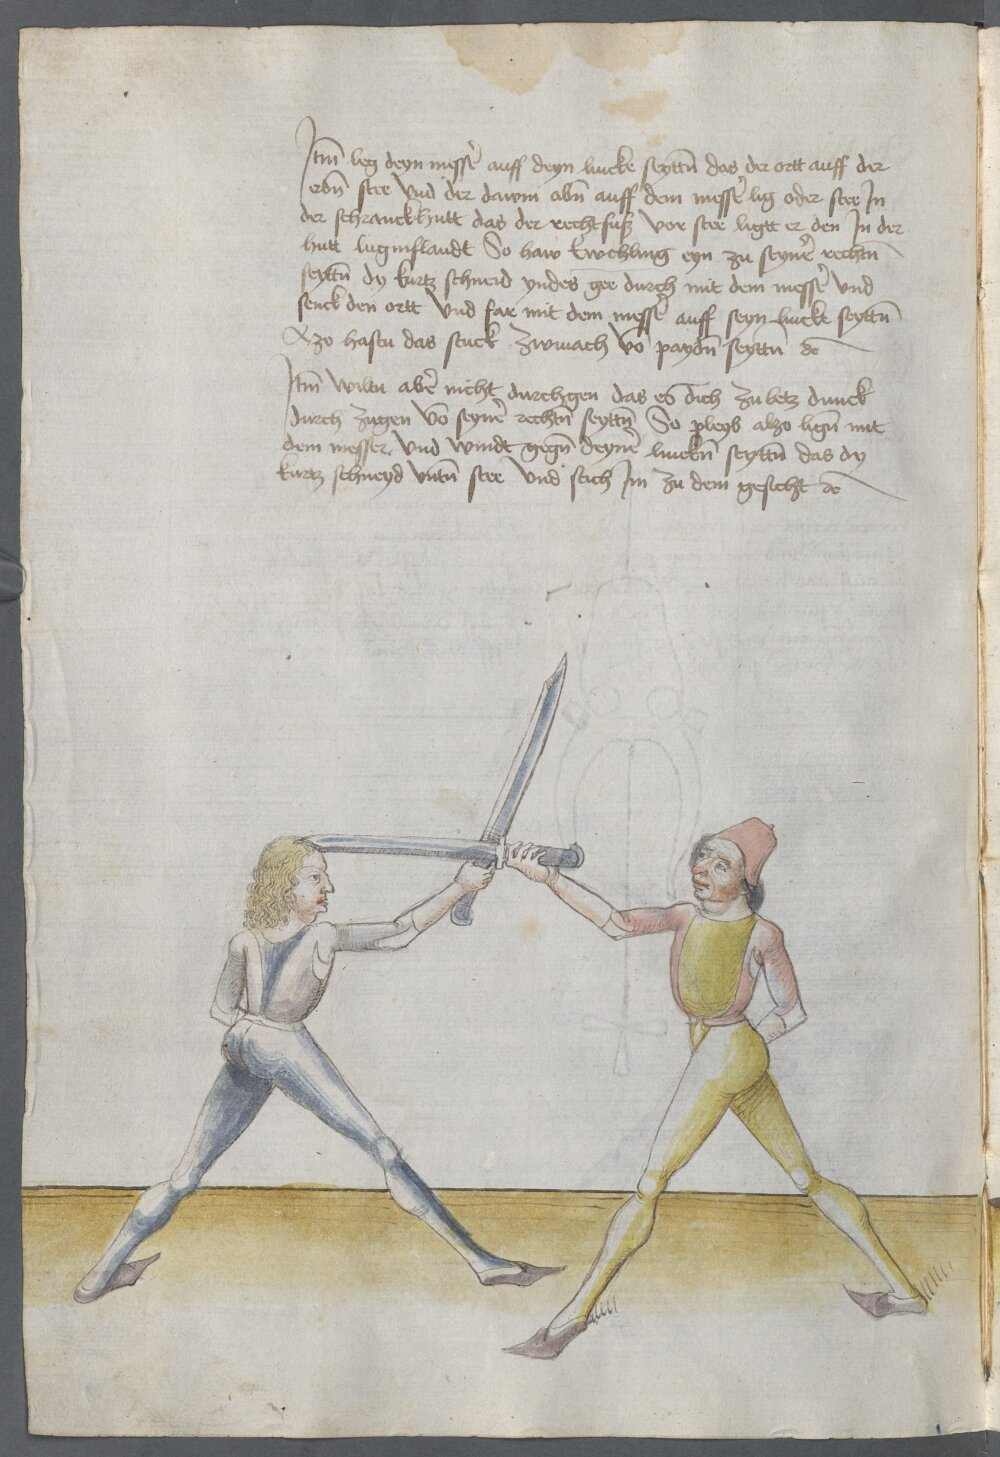 Itm̃ leg deyn messẽ auff deyn lincke seyttñ das der ortt auff der
erdñ stee Vnd der dawm obñ auff dem messẽ lig oder stee In
der schranckhutt das der recht fuß vor stee ligtt er den In der
hutt luginslandt So haw kwchling eyn zu seynẽ rechtñ
seyttñ dy kurtz schneid yndes gee durch mit dem messẽ vnd
senck den ortt Vnd far mit dem messẽ auff seyn lincke seyttñ
Alzo hastu das stuck zwinach võ paydñ seyttñ ꝛc
Itm̃ Wiltu abẽ nicht durchgen das es dich zu letz dunck
durch zugen võ seynẽ rechtñ seyttñ So pleyb alzo ligñ mit
dem messer Vnd Windt gegñ deynẽ linckñ seyttñ das dy
kurtz schneyd vntñ stee Vnd stich Im zu dem gesicht ꝛc